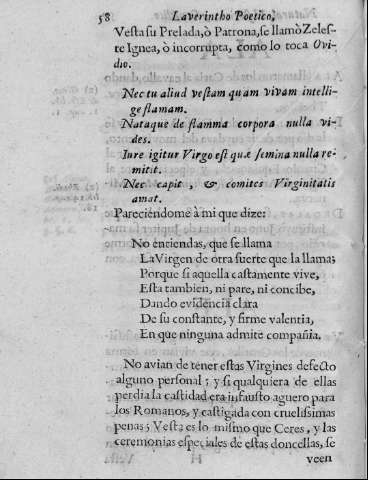 58 Laverintho Poetico,
Vesta su Prelada,ò Patrona,se llamò Zeles-
te Ignea, ò incorrupta, como lo toca Ovi-
dio.
Nec tu aliud vestam quam vivam intelli-
ge flamam.
Nataque de flamma corpora nulla vi-
des.
Iure igitur Virgo est quæ semina nulla re-
mitit.
Nec capit , & comites Virginitatis
amat.
Pareciendome à mi que dize:
No entiendas, que se llama
La Virgen de otra suerte que la llama;
Porque si aquella castamente vive,
Esta tambien, ni pare, ni concibe,
Dando evidencia clara
De su constante, y firme valentia,
En que ninguna admite compañia.
No avian de tener estas Virgines defecto
alguno personal ; y si qualquiera de ellas
perdia la castidad era infausto aguero para
los Romanos, y castigada con cruelissimas
penas ; Vesta es lo mismo que Ceres, y las
ceremonias especiales de estas doncellas, se
veen